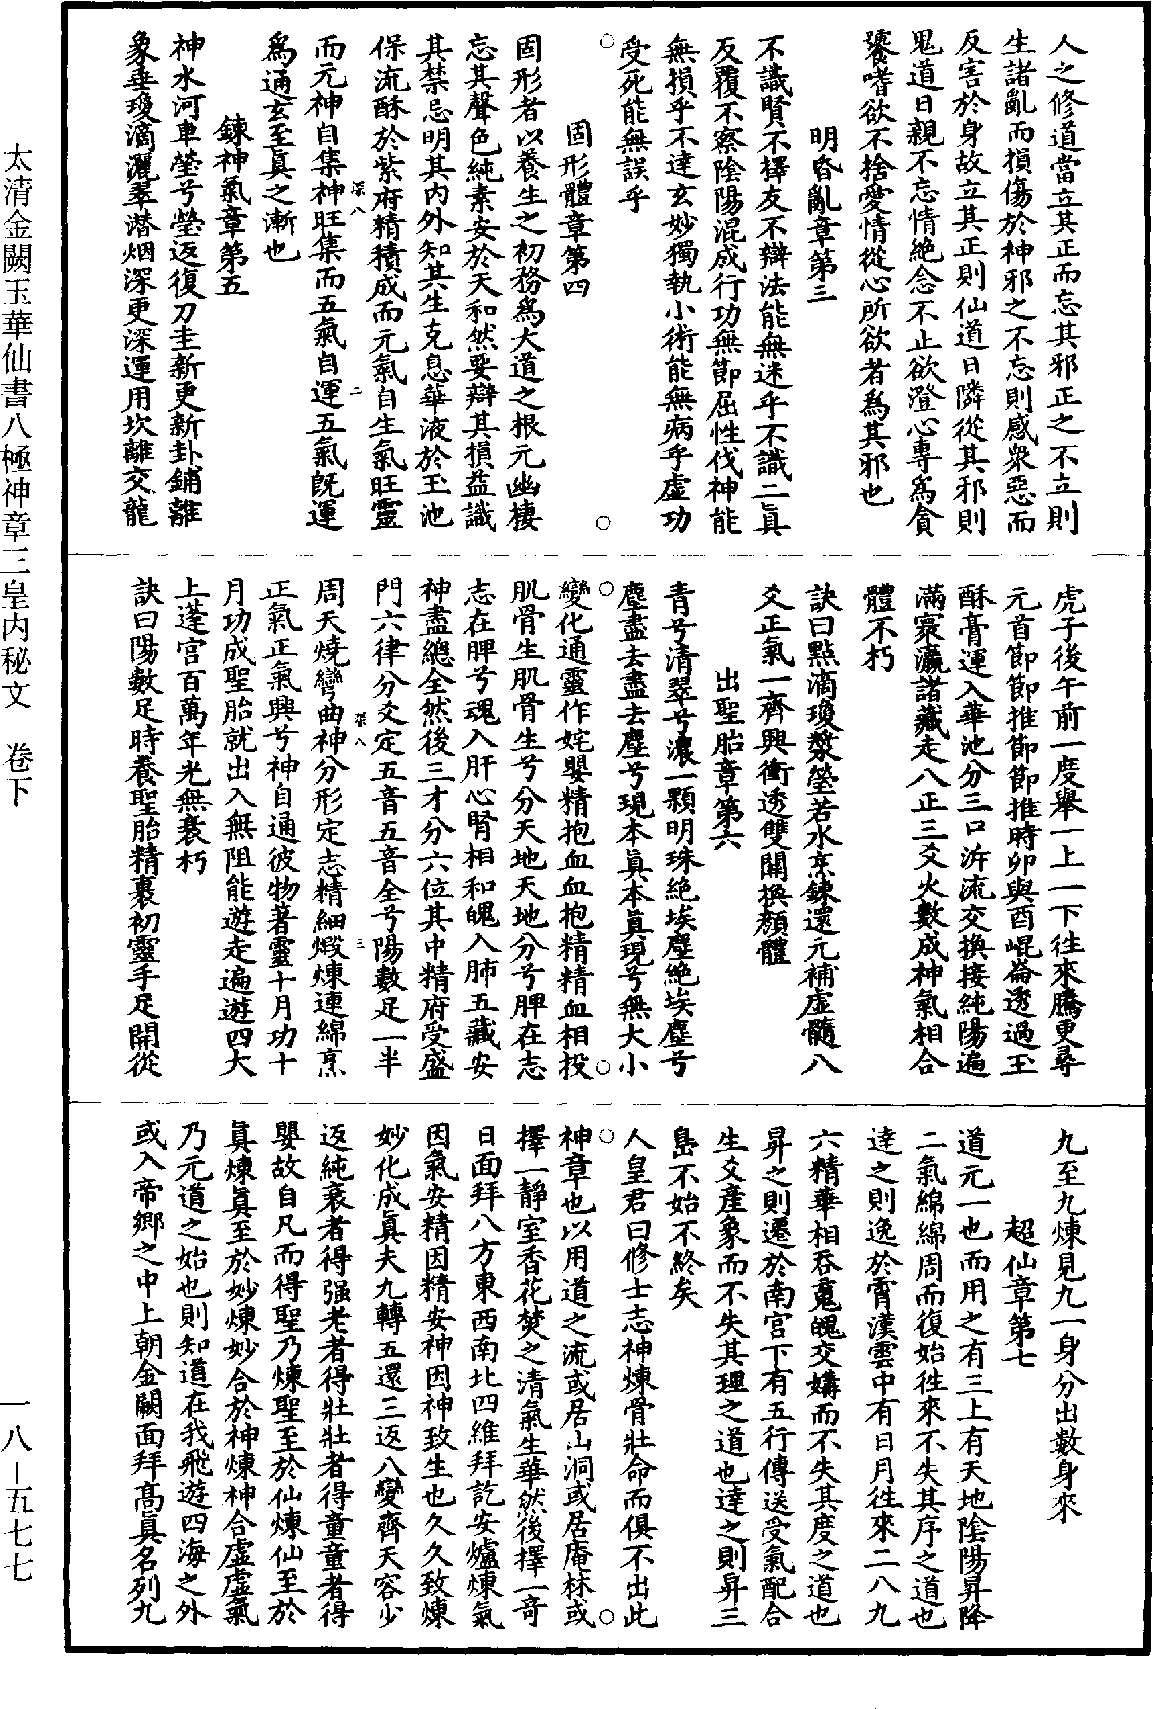 人之修道當立其正而忘其邪正之不立則
生諸亂而損傷於神邪之不忘則感衆惡而
反害於身故立其正則仙道日隣從其邪則
鬼道日親不忘情絶念不止欲澄心專爲貪
饕嗜欲不捨愛情從心所欲者爲其邪也
明昏亂章第三
不識賢不擇友不辯法能無迷乎不識二眞
反覆不察陰陽混成行功無節屈性伐神能
無損乎不達玄妙獨執小術能無病乎虛功
受死能無誤乎
固形體章第四
固形者以養生之初務爲大道之根元幽棲
忘其聲色純素安於天和然要辯其損益識
其禁忌明其內外知其生克息華液於玉池
保流酥於紫府精積成而元氣自生氣旺靈
深八
二
而元神自集神旺集而五氣自運五氣旣運
爲通玄至眞之漸也
鍊神氣章第五
神水河車瑩兮瑩返復刀圭新更新卦鋪離
象垂瓊滴灑翠潛烟深更深運用坎離交龍
虎子後午前一度舉一上一下徃來騰更尋
元首節節推節節推時卯與酉崐崙透過玉
酥膏運入華池分三口泝流交換接純陽遍
滿寰瀛諸藏走八正三爻火數成神氣相合
體不朽
訣曰點滴瓊漿瑩若水烹鍊還元補虛髓八
爻正氣一齊興衝透雙關換顏體
出聖胎章第六
青兮清翠兮濃一顆明珠絶埃塵絶埃塵兮
塵盡去盡去塵兮現本眞本眞現兮無大小
變化通靈作姹嬰精抱血血抱精精血相投
肌骨生肌骨生兮分天地天地分兮脾在志
志在脾兮魂入肝心腎相和魄入肺五藏安
神盡總全然後三才分六位其中精府受盛
門六律分爻定五音五音全兮陽數足一半
深八
三
周天燒彎曲神分形定志精細煆煉連綿烹
正氣正氣興兮神自通彼物著靈十月功十
月功成聖胎就出入無阻能遊走遍遊四大
上蓬宮百萬年光無衰朽
訣曰陽數足時養聖胎精裹初靈手足開從
九至九煉見九一身分出數身來
超仙章第七
道元一也而用之有三上有天地陰陽昇降
二氣綿綿周而復始徃來不失其序之道也
達之則逸於霄漢雲中有日月徃來二八九
六精華相吞䰟魄交媾而不失其度之道也
昇之則遷於南宮下有五行傳送受氣配合
生爻產象而不失其理之道也達之則昇三
島不始不終矣
人皇君曰修士志神煉骨壯命而俱不出此
神章也以用道之流或居山洞或居庵林或
擇一靜室香花焚之清氣生華然後擇一竒
日面拜八方東西南北四維拜訖安爐煉氣
因氣安精因精安神因神致生也久久致煉
妙化成眞夫九轉五還三返八變齊天容少
返純衰者得强老者得壯壯者得童童者得
嬰故自凡而得聖乃煉聖至於仙煉仙至於
眞煉眞至於妙煉妙合於神煉神合虛虛氣
乃元道之始也則知道在我飛遊四海之外
或入帝鄉之中上朝金闕面拜高眞名列九
太清金闕玉華仙書八極神章三皇內秘文 卷下
一八—五七七